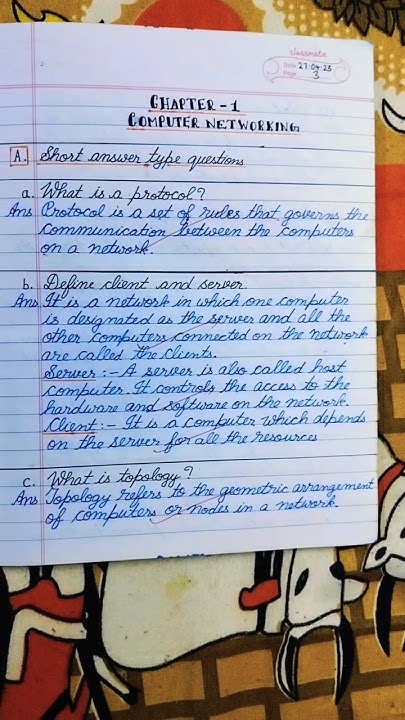 classmate
Date 27.04.23
Page 3
CHAPTER - 1
COMPUTER NETWORKING
A. Short answer type questions
a. What is a protocol?
Ans Protocol is a set of rules that governs the
communication between the computers
on a network.
b. Define client and server
Ans It is a network in which one computer
is designated as the server and all the
other computers connected on the network
are called the clients.
Server :- A server is also called host
computer. It controls the access to the
hardware and software on the network.
Client :- It is a computer which depends
on the server for all the resources
c. What is topology?
Ans Topology refers to the geometric arrangement
of computers or nodes in a network.